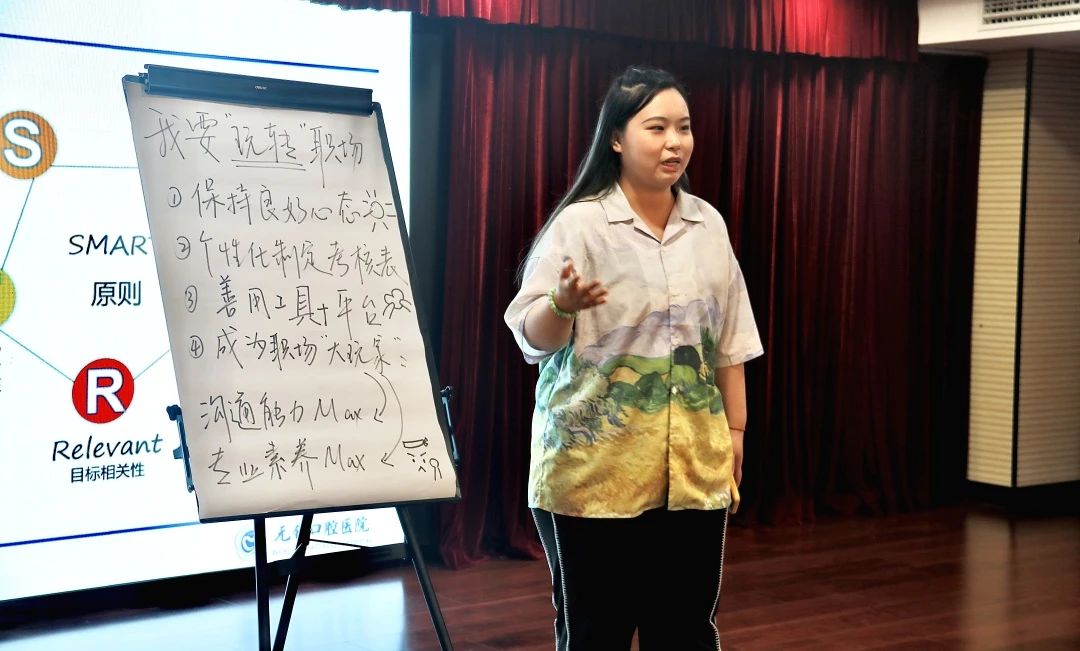 我要"玩转"职场
①保持良好心态
②个性化制定考核表
③善用工具+平台
④成为职场"大玩家"
沟通能力Max
专业素养Max
S
SMAR
原则
R
Relevant
目标相关性
口腔医院